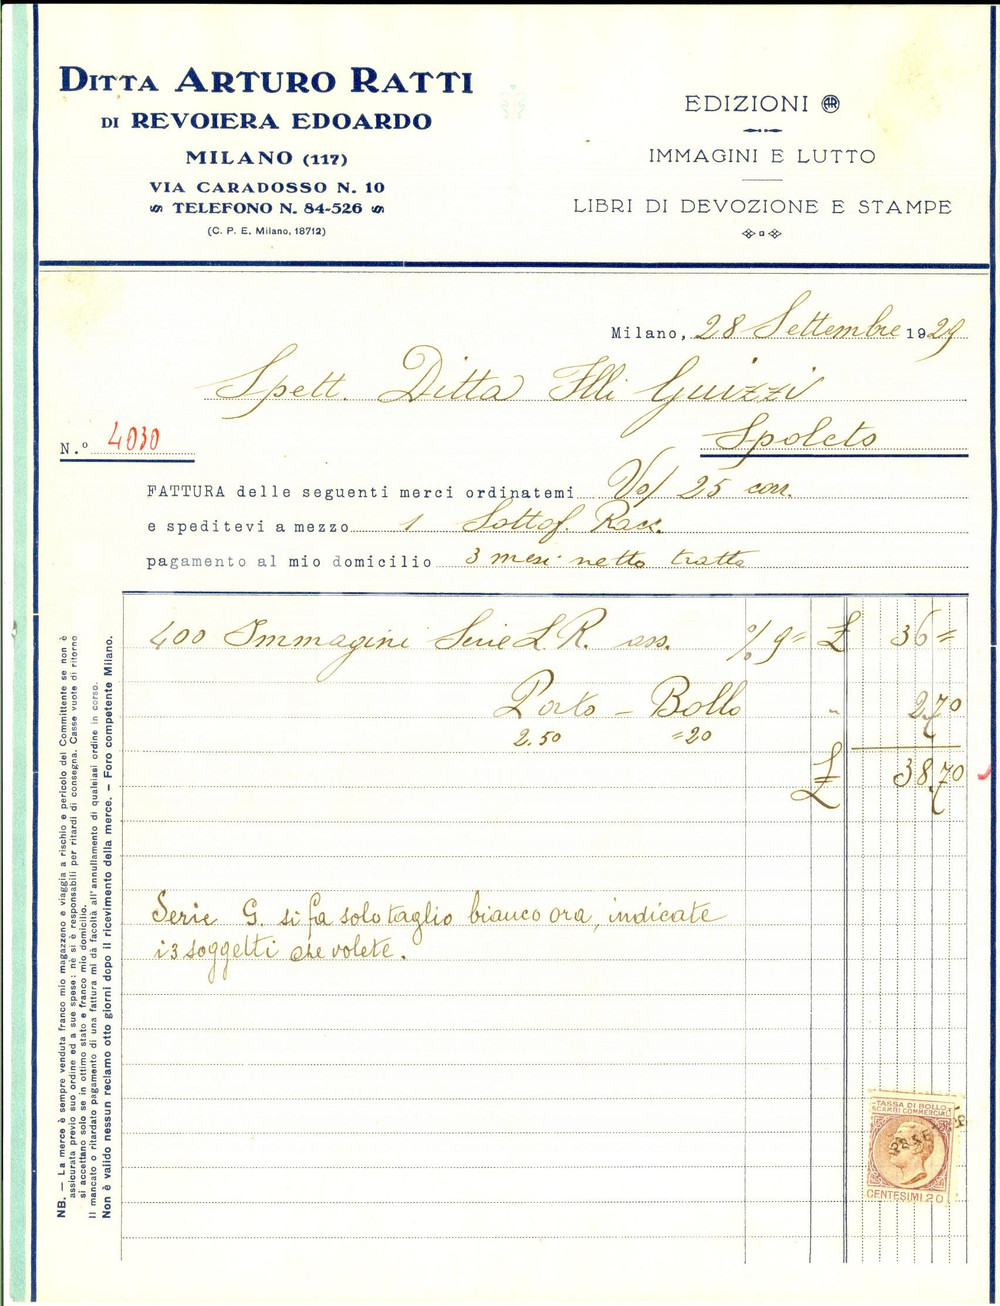 DITTA ARTURO RATTI
DI REVOIERA EDOARDO
MILANO (117)
VIA CARADOSSO N. 10
TELEFONO N. 84-526
(C. P. E. Milano, 18712)
EDIZIONI AR
IMMAGINI E LUTTO
LIBRI DI DEVOZIONE E STAMPE
Milano, 28 Settembre 1929
Spett. Ditta Flli Guizzi
Spoleto
N.º 4030
FATTURA delle seguenti merci ordinatemi Vo/ 25 corr.
e speditevi a mezzo 1 Sottof. Racc.
pagamento al mio domicilio 3 mesi netto tratta
400 Immagini Serie L.R. ass. % 9= £ 36=
Porto - Bollo " 2.70
2.50 =20
£ 38.70
Serie G. si fa solo taglio bianco ora, indicate
i 3 soggetti che volete.
NB. — La merce è sempre venduta franco mio magazzeno e viaggia a rischio e pericolo del Committente se non è
assicurata previo suo ordine ed a sue spese: nè si è responsabili per ritardi di consegna. Casse vuote di ritorno
si accettano solo se in ottimo stato e franco mio domicilio.
Il mancato o ritardato pagamento di una fattura mi dà facoltà all'annullamento di qualsiasi ordine in corso.
Non è valido nessun reclamo otto giorni dopo il ricevimento della merce. — Foro competente Milano.
TASSA DI BOLLO
SCAMBI COMMERCIALI
28 SE
CENTESIMI 20